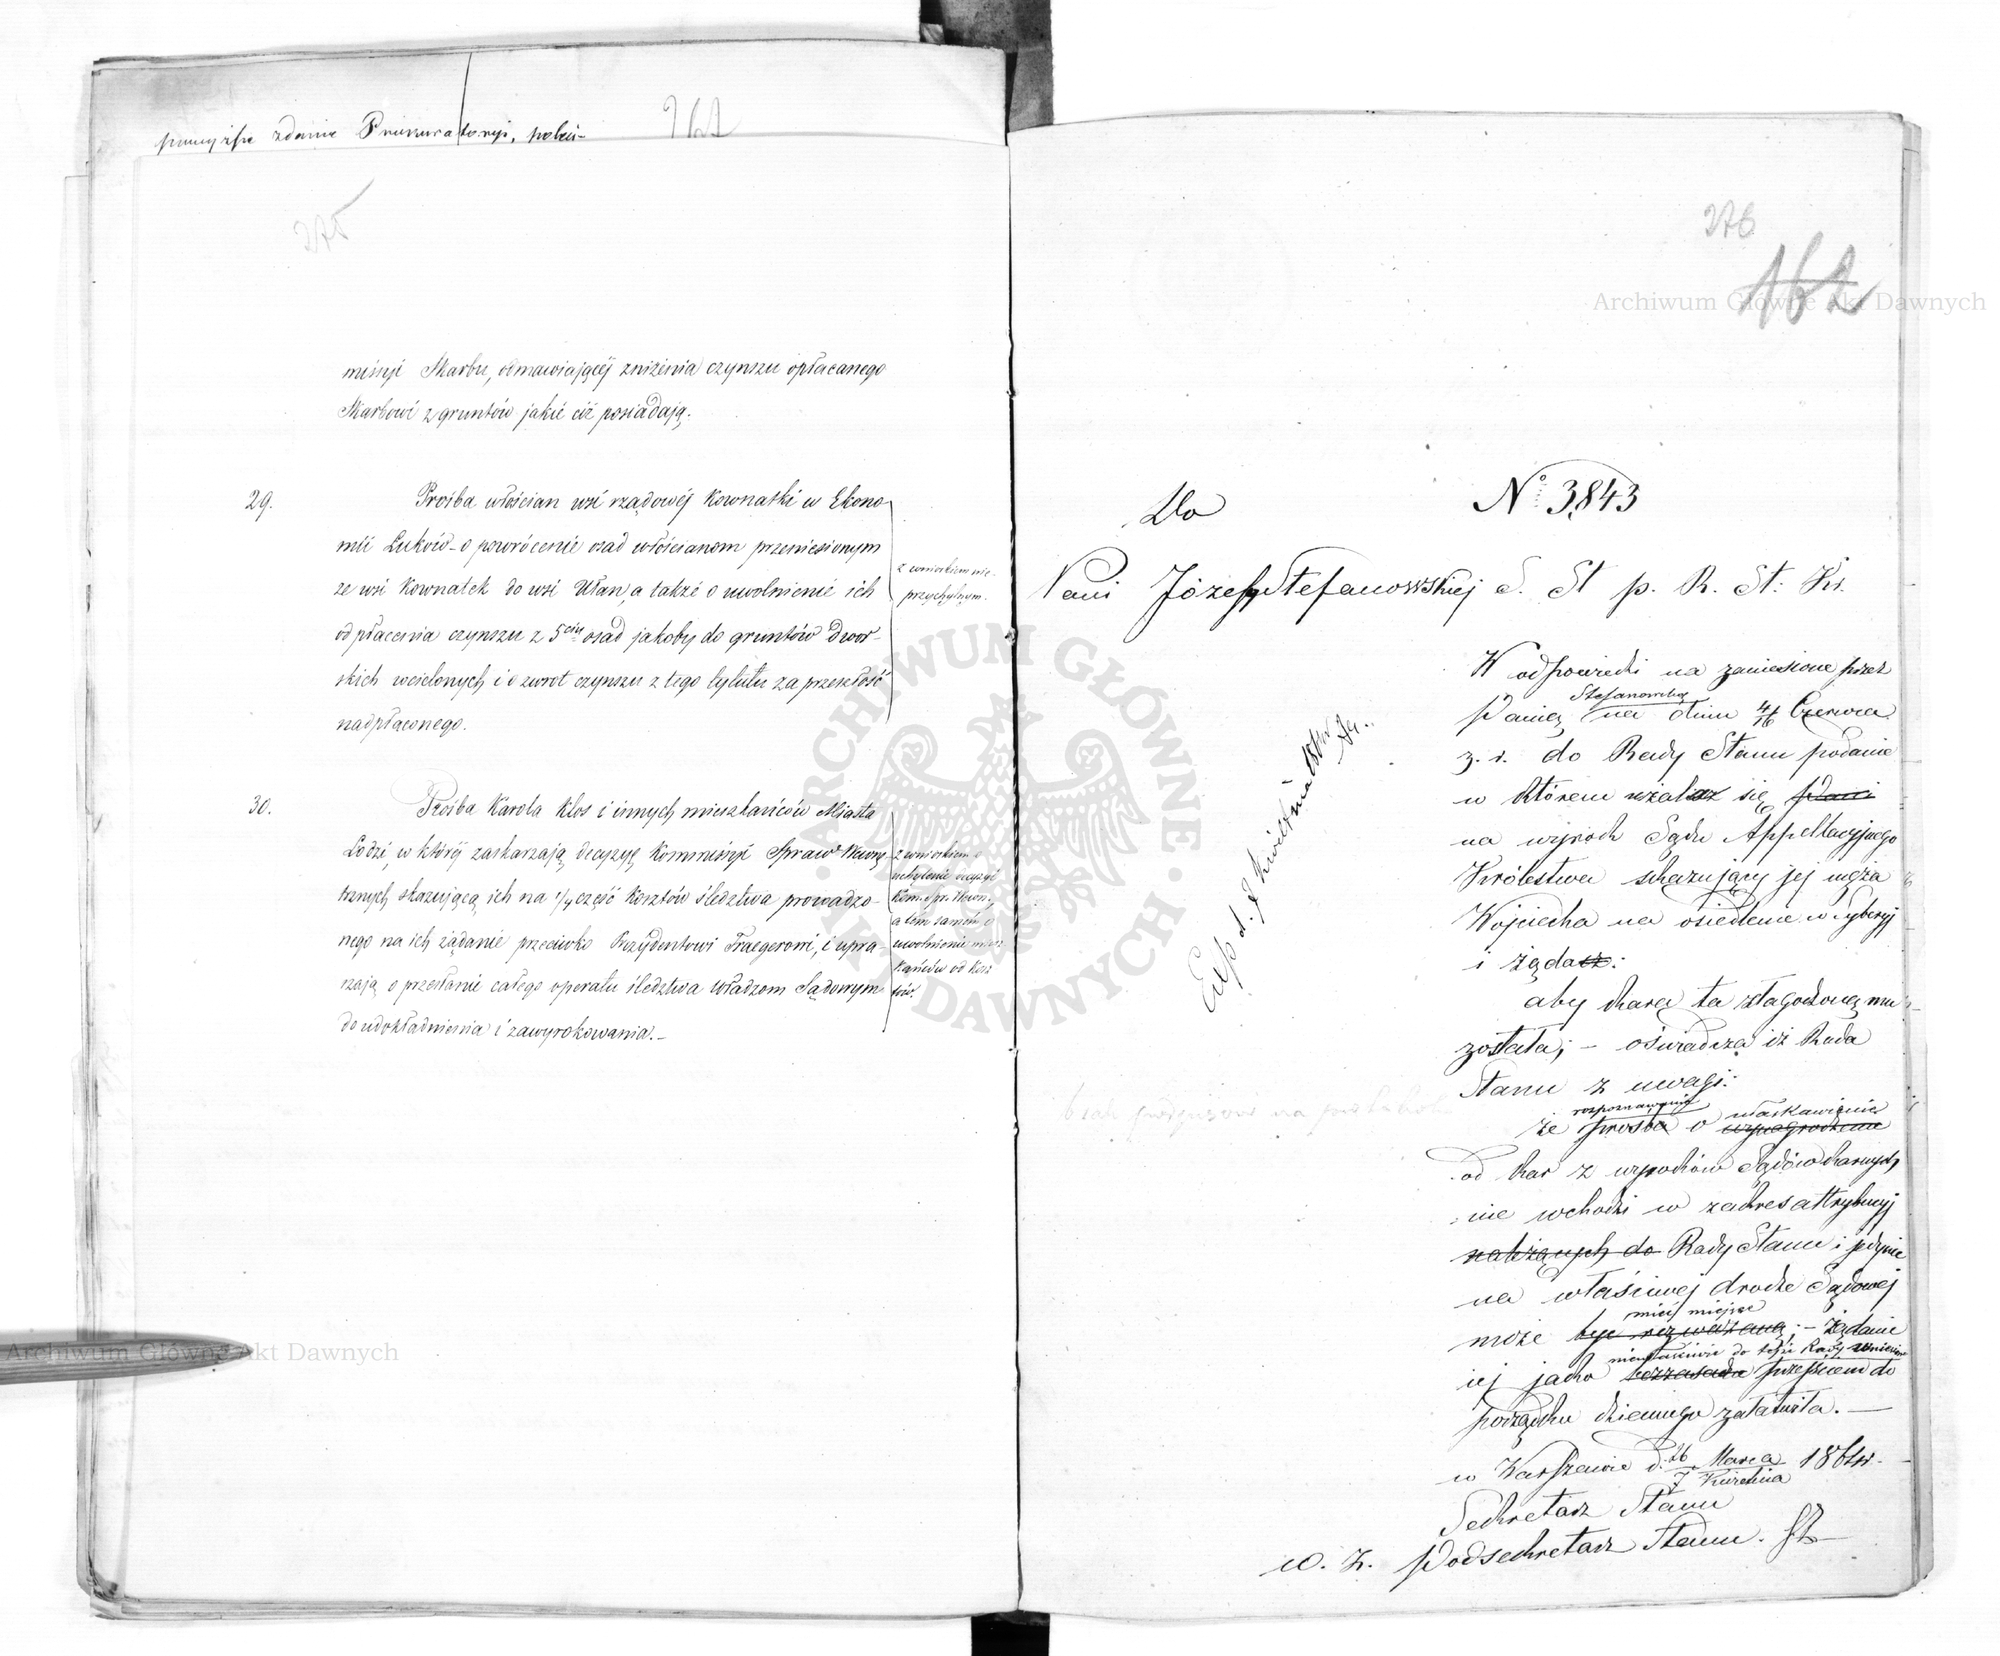 powyższe zdanie Prokuratoryi, poleci-
262
275
missyi Skarbu, odmawiającéj zniżenia czynszu opłacanego
Skarbowi z gruntów jakie ciż posiadają.
29.
Prośba włościan wsi rządowéj Kownatki w Ekono-
mii Łuków - o powrócenie osad włościanom przeniesionym
ze wsi Kownatek do wsi Ułan, a także o uwolnienie ich
od płacenia czynszu z 5ciu osad jakoby do gruntów dwor-
skich wcielonych i o zwrot czynszu z tego tytułu za przeszłość
nadpłaconego.
z wnioskiem nie-
przychylnym.
30.
Prośba Karola Klos i innych mieszkańców Miasta
Łodzi, w któréj zaskarżają decyzyę Kommissyi Spraw Wewnę-
trznych skazującą ich na 1/4 część kosztów śledztwa prowadzo-
nego na ich żądanie przeciwko Prezydentowi Traegerowi, i upra-
szają o przesłanie całego operatu śledztwa Władzom Sądowym
do udokładnienia i zawyrokowania. -
z wnioskiem o
uchylenie decyzyi
Kom. Spr. Wewn.,
a tém samém o
uwolnienie miesz-
kańców od kosz-
tów.
276
162
No 3,843
Do
Pani Józefy Stefanowskiej S. St p. R. St: Kr.
W odpowiedzi na zaniesione przez
Stefanowską
Panią na dniu 4/16 Czerwca
z. r. do Rady Stanu podanie
w którem użalasz się Pani
na wyrok Sądu Appellacyjnego
Królestwa skazujący jej męża
Wojciecha na osiedlenie w Syberyj
i żądasz:
aby kara ta złagodzoną mu
została; - oświadcza iż Rada
Stanu z uwagi:
rozpoznawanie
ułaskawienie
że prośba o
od kar z wyroków Sądów karnych
nie wchodzi w zakres attrybucyj
należących do Rady Stanu i jedynie
na właściwej drodze Sądowej
mieć miejsce
może być rozważaną; - żądanie
niewłaściwie do tejże Rady wniesione
jej jako bezzasadne przejściem do
porządku dziennego załatwiła. -
w Warszawie d. 26 Marca 186 r.
7 Kwietnia
Sekretarz Stanu
w. z. Podsekretarz Stanu.
Exp d. 9 Kwietnia
brak podpisów na protokół
Archiwum Główne Akt Dawnych
Archiwum Główne Akt Dawnych
ARCHIWUM GŁÓWNE AKT DAWNYCH